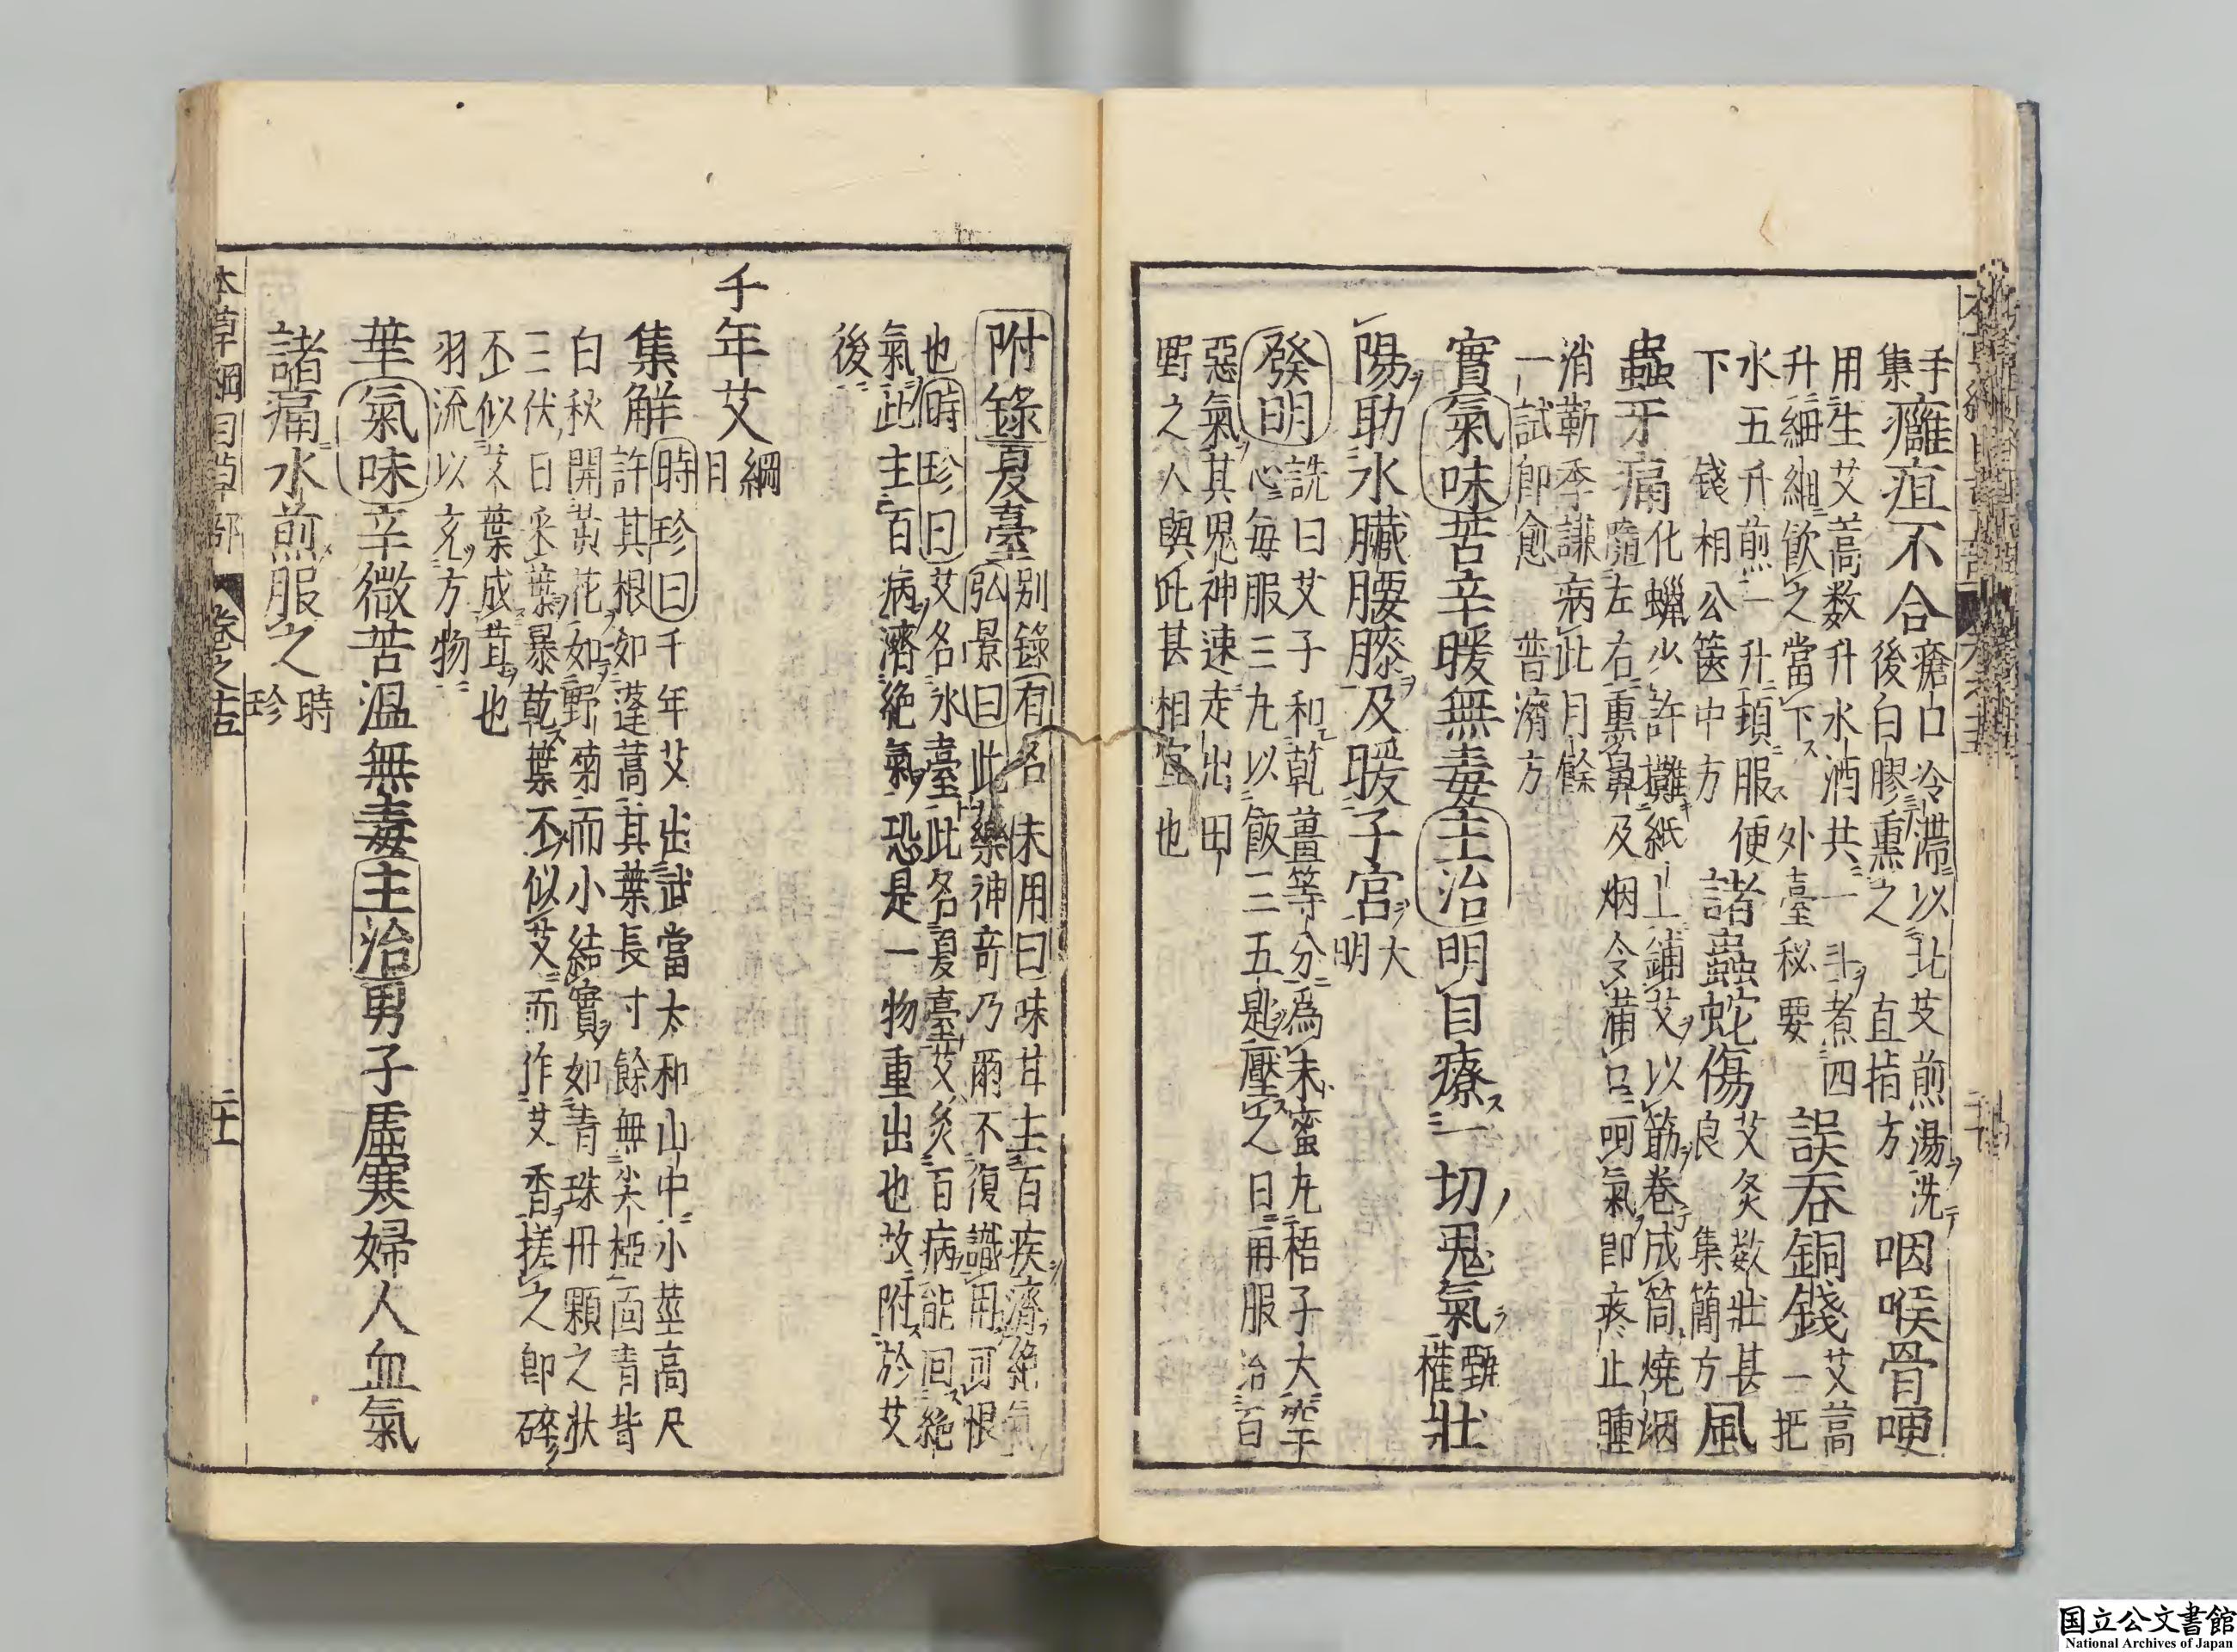 手集癰疽不合瘡口冷滯以北艾煎湯洗後白膠熏之直指方咽喉骨哽
用生艾蒿数升水酒共一斗煮四升細細飲之當下外臺秘要誤吞銅錢艾蒿一把
水五升煎一升頓服便下錢相公篋中方諸蟲蛇傷艾灸数壯甚良集簡方風
蟲牙痛化蠟少許攤紙上鋪艾以筯卷成筒燒烟隨左右熏鼻及烟令滿口呵氣即疼止腫
消靳季謙病此月餘一試即愈普濟方
實氣味苦辛暖無毒主治明目療一切鬼氣甄權壯
陽助水臟腰膝及暖子宮大明
發明詵曰艾子和乾薑等分為末蜜丸梧子大空心每服三丸以飯三五匙壓之日再服治百
惡氣其鬼神速走出田野之人與此甚相宜也
附錄夏臺別錄有名未用曰味甘主百疾濟絕氣弘景曰此藥神奇乃爾不復識用可恨
也時珍曰艾名氷臺此名夏臺艾灸百病能回絕
氣此主百病濟絕氣恐是一物重出也故附於艾
後
千年艾綱目
集解時珍曰千年艾出武當太和山中小莖高尺許其根如蓬蒿其葉長寸餘無尖椏面青背
白秋開黃花如野菊而小結實如青珠丹顆之狀三伏日采葉暴乾葉不似艾而作艾香搓之即碎
不似艾葉成茸也羽流以充方物
葉氣味辛微苦溫無毒主治男子虛寒婦人血氣
諸痛水煎服之時珍
本草綱目草部 卷之十五 二十一
国立公文書館
National Archives of Japan